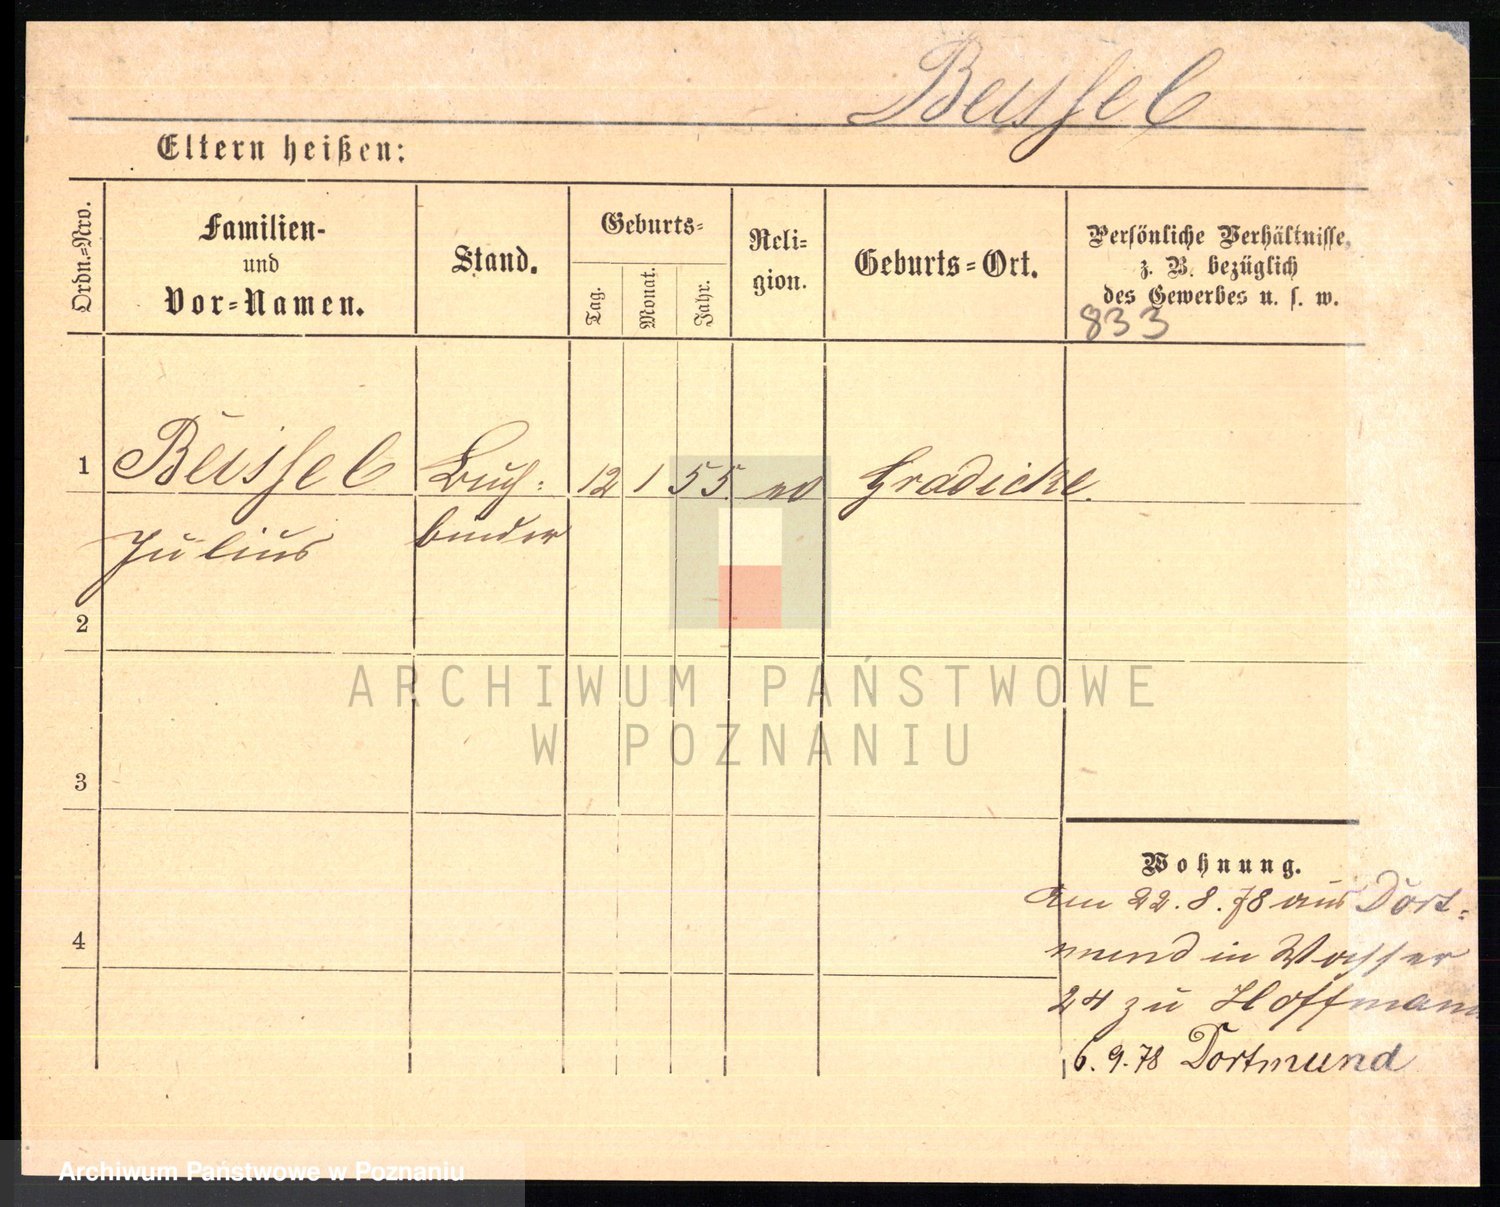 Beissel
Eltern heißen:
Ordn.-Nro.
Familien-
und
Vor-Namen.
Stand.
Geburts-
Tag.
Monat.
Jahr.
Reli-
gion.
Geburts-Ort.
Persönliche Verhältnisse,
z. B. bezüglich
des Gewerbes u. s. w.
833
1 Beissel Buch- 12 1 55. ev Gradicke.
Julius binder
2
3
4
Wohnung.
am 22.8.78 aus Dort-
mund in Wasser
24 zu Hoffmann
6.9.78 Dortmund
ARCHIWUM PAŃSTWOWE
W POZNANIU
Archiwum Państwowe w Poznaniu